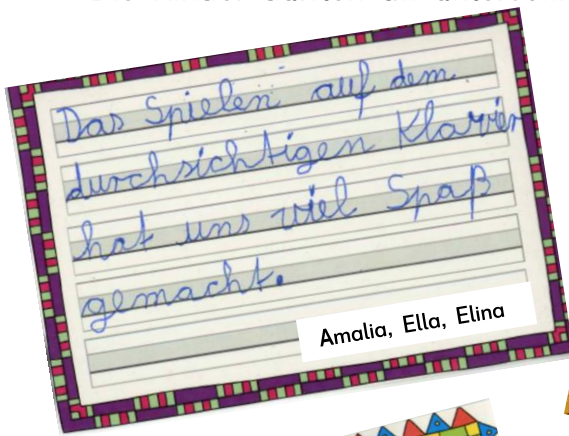 Das Spielen auf dem
durchsichtigen Klavier
hat uns viel Spaß
gemacht.
Amalia, Ella, Elina